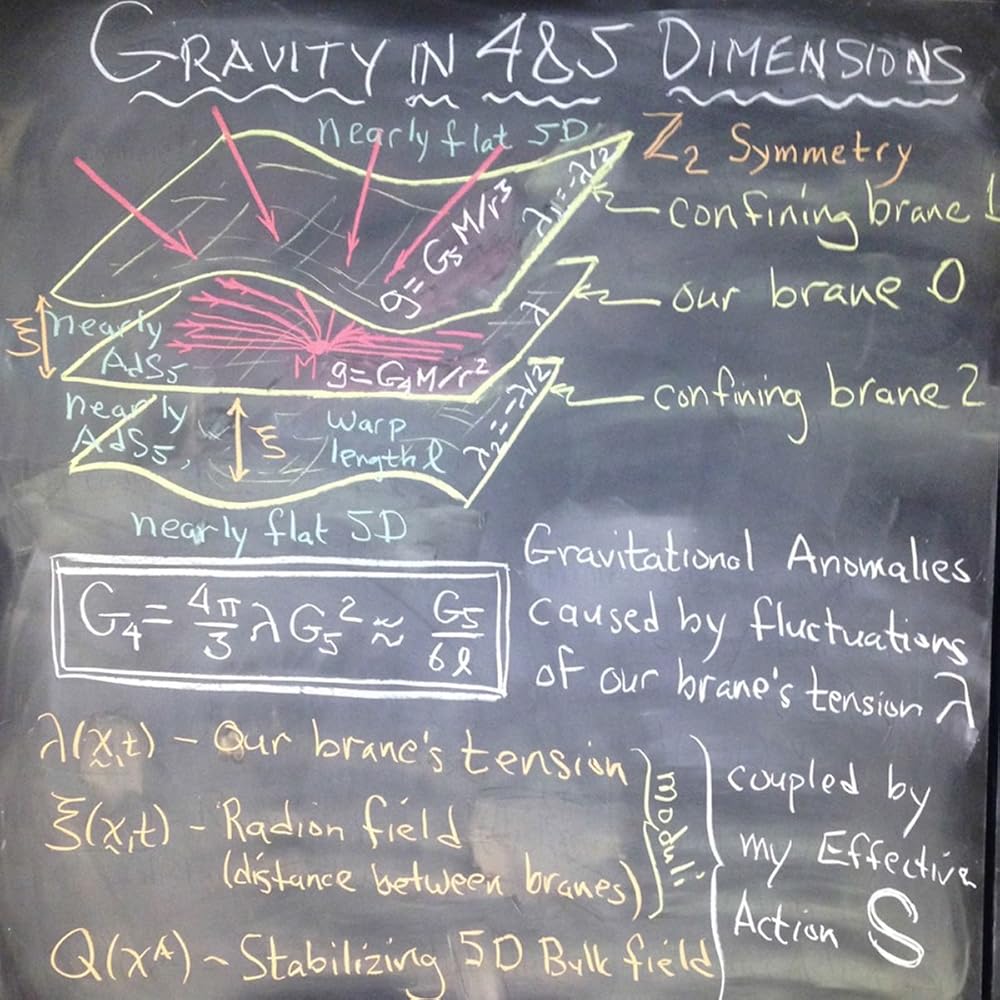 GRAVITY IN 4&5 DIMENSIONS
nearly flat 5D
Z₂ Symmetry
confining brane 1
λ₁=-λ/2
g=G₅M/r³
our brane 0
λ
ξ
nearly
AdS₅
M
g=G₄M/r²
confining brane 2
λ₂=-λ/2
nearly
AdS₅,
ξ
warp
length ℓ
nearly flat 5D
G₄ = 4π/3 λ G₅² ≈ G₅/6ℓ
Gravitational Anomalies
caused by fluctuations
of our brane's tension λ
λ(x,t) - Our brane's tension
ξ(x,t) - Radion field
(distance between branes)
moduli
Q(xᴬ) ~ Stabilizing 5D Bulk field
coupled by
my Effective
Action S